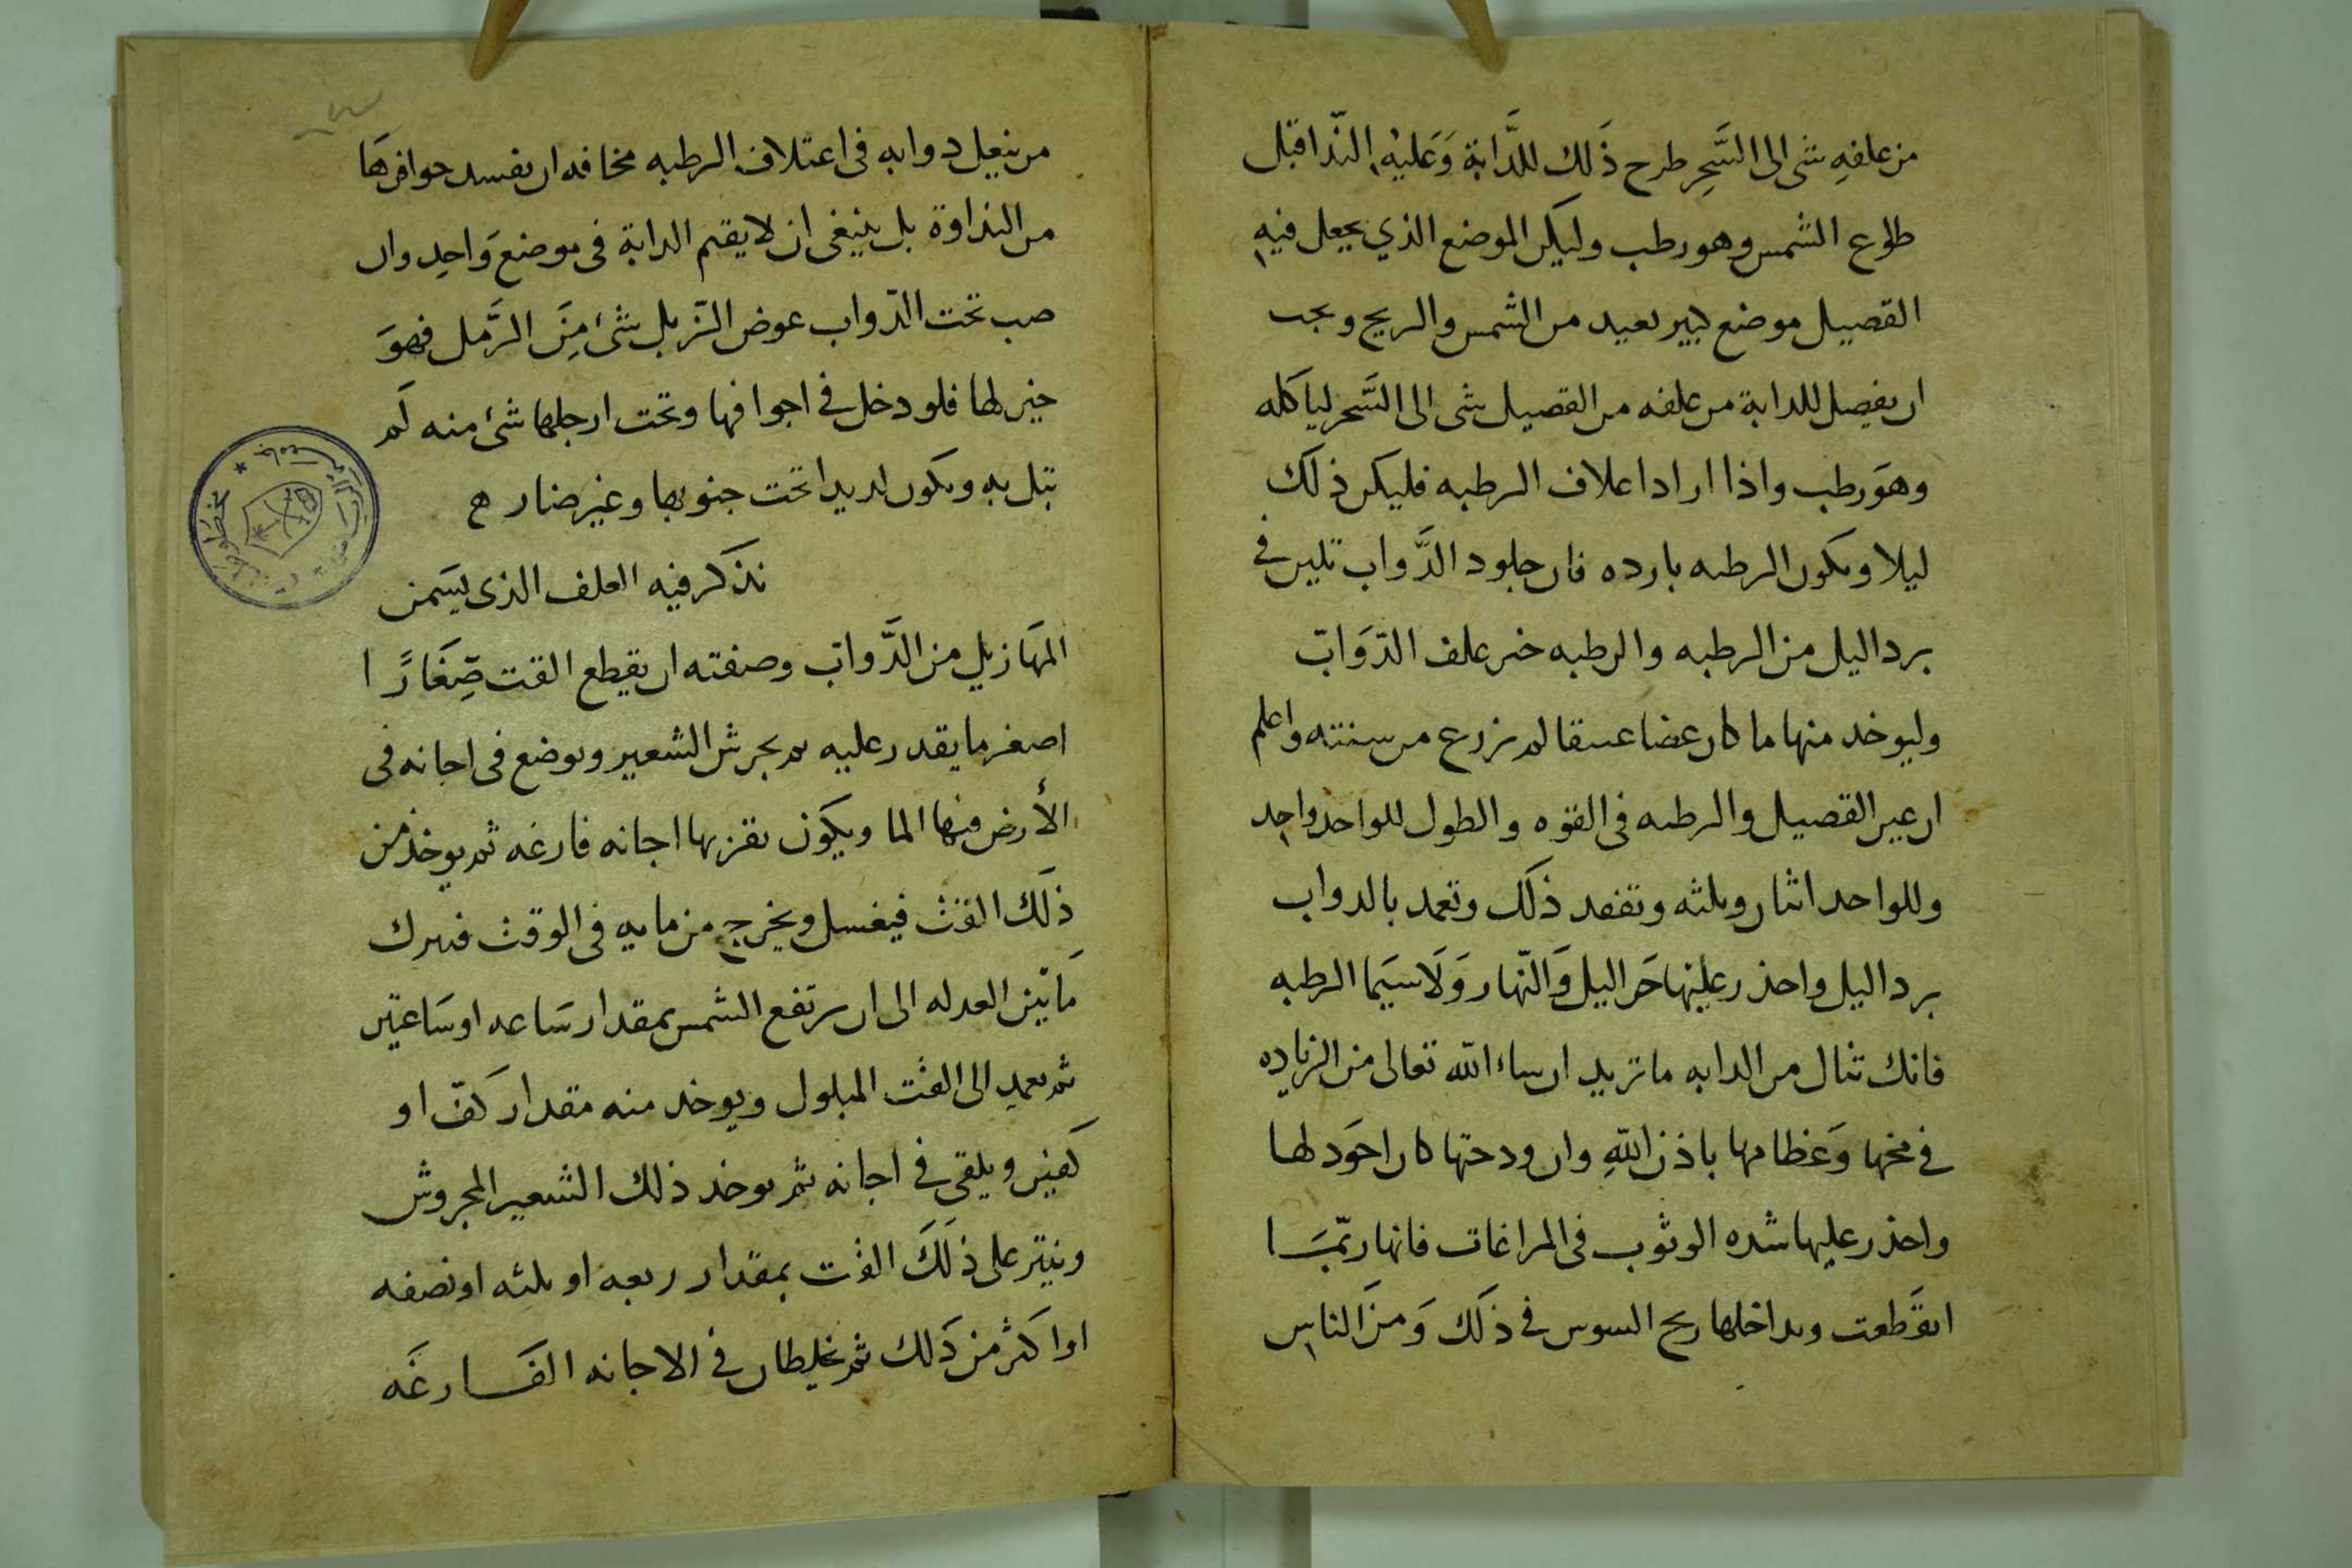 من علفهِ شى الى السَّحِر طرح ذَلك للدَّابة وَعَليْهِ النّدا قبل
طلوع الشمس وهو رطب وليكن الموضع الذي يجعل فيهِ
القصيل موضع كبير بعيد من الشمس والريح ويجب
ان يفصل للدابة من علفه من القصيل شى الى السَّحر لياكله
وهوَ رطب واذا اراد اعلاف الرطبه فليكن ذلك
ليلا ويكون الرطبه بارده فان جلود الدَّواب تلين فى
برد اليل من الرطبه والرطبه خير علف الدّوَابّ
وليوخد منها ما كان غضا عتيقا لم نزرع من سنته واعلم
ان عير القصيل والرطبه فى القوه والطول للواحد واحِد
وللواحد اثنان وثلثه وتفقد ذلَك وتعمد بالدواب
برد اليل واحذر عليْها حَر اليل وَالنّهار وَلَاسيَما الرطبه
فانك تنال من الدابه ما تريد ان ساء الله تعالى من الزياده
فى مخها وَعَظامها باذن اللهِ وان ودحتها كان احوَد لها
واحذر عليها شده الوثوب فى المراغات فانها ربّمَا
انقَطعت ويداخلها ريح السوس فى ذلَك وَمنَ الناس
من ينعِل دوابه فى اعتلاف الرطبه مخافه ان يفسد حوافرهَا
من النداوة بل ينبغى ان لا يقيم الدابة فى موضع وَاحِد وان
صب تحت الدّواب عوض الزّبل شىٔ مِنَ الرَّمل فهوَ
خير لها فلو دخل فى اجوافها وتحت ارجلها شىٔ منه لَم
تبل به ويكون لديدا تحت جنوبها وغير ضار ح
نذكر فيه العلف الذى يسَمن
المهَازيل من الدَّوابّ وصفته ان يقطع القت صِغَارًا
اصغر ما يقدر عليه ثم يجرش الشعير ويوضع فى اجانه فى
الأرض فيها الما ويكَون بقربها اجانه فارغه ثم يوخذ من
ذلَك القث فيغسل ويخرج من مايه فى الوقت فيترك
مَا بيْن العدله الى ان ترتفع الشمس بمقدار سَاعه او سَاعتين
ثم يعمد الى القت المبلول ويوخد منه مقدار كَفّ او
كَفين ويلقى فى اجانه ثم يوخد ذلك الشعير المجروش
وينثر على ذلَكَ القت بمقدار ربعه او ثلثه او نصفه
او اكَثر من ذَلك ثم يخلطان فى الاجانه الفَارغَه